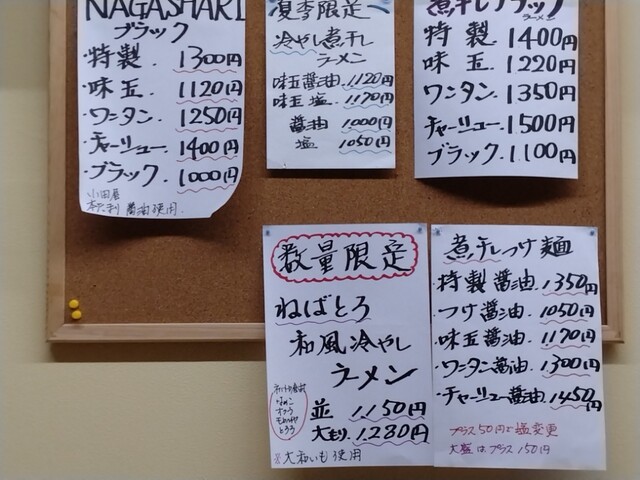 NAGASHARI
ブラック
・特製. 1300円
・味玉. 1120円
・ワンタン. 1250円
・チャーシュー. 1400円
・ブラック. 1000円
醤油使用.
夏季限定
冷やし煮干し
ラーメン
味玉醤油. 1120円
味玉塩. 1170円
醤油 1000円
塩 1050円
煮干しブラック
ラーメン
特製 1400円
味玉 1220円
ワンタン. 1350円
チャーシュー. 1500円
・ブラック. 1.100円
数量限定
ねばとろ
和風冷やし
ラーメン
なめこ
オクラ
とろろ
並 1.150円
大もり. 1.280円
※大和いも使用
煮干しつけ麺
・特製醤油. 1350円
・つけ醤油. 1050円
・味玉醤油. 1170円
・ワンタン醤油. 1300円
・チャーシュー醤油. 1450円
プラス50円で塩変更
大盛はプラス150円